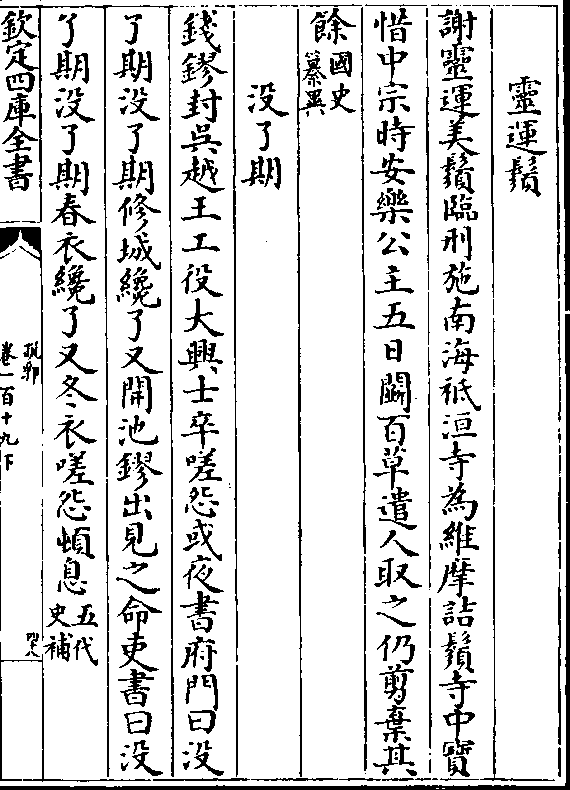 靈運鬚
謝靈運美鬚臨刑施南海祗洹寺為維摩詰鬚寺中寶
惜中宗時安樂公主五日鬭百草遣人取之仍剪棄其
餘國史纂異
没了期
錢鏐封吳越王工役大興士卒嗟怨或夜書府門曰没
了期没了期修城纔了又開池鏐出見之命吏書曰没
了期没了期春衣纔了又冬衣嗟怨頓息五代史補
欽定四庫全書
說郛
卷一百十九下